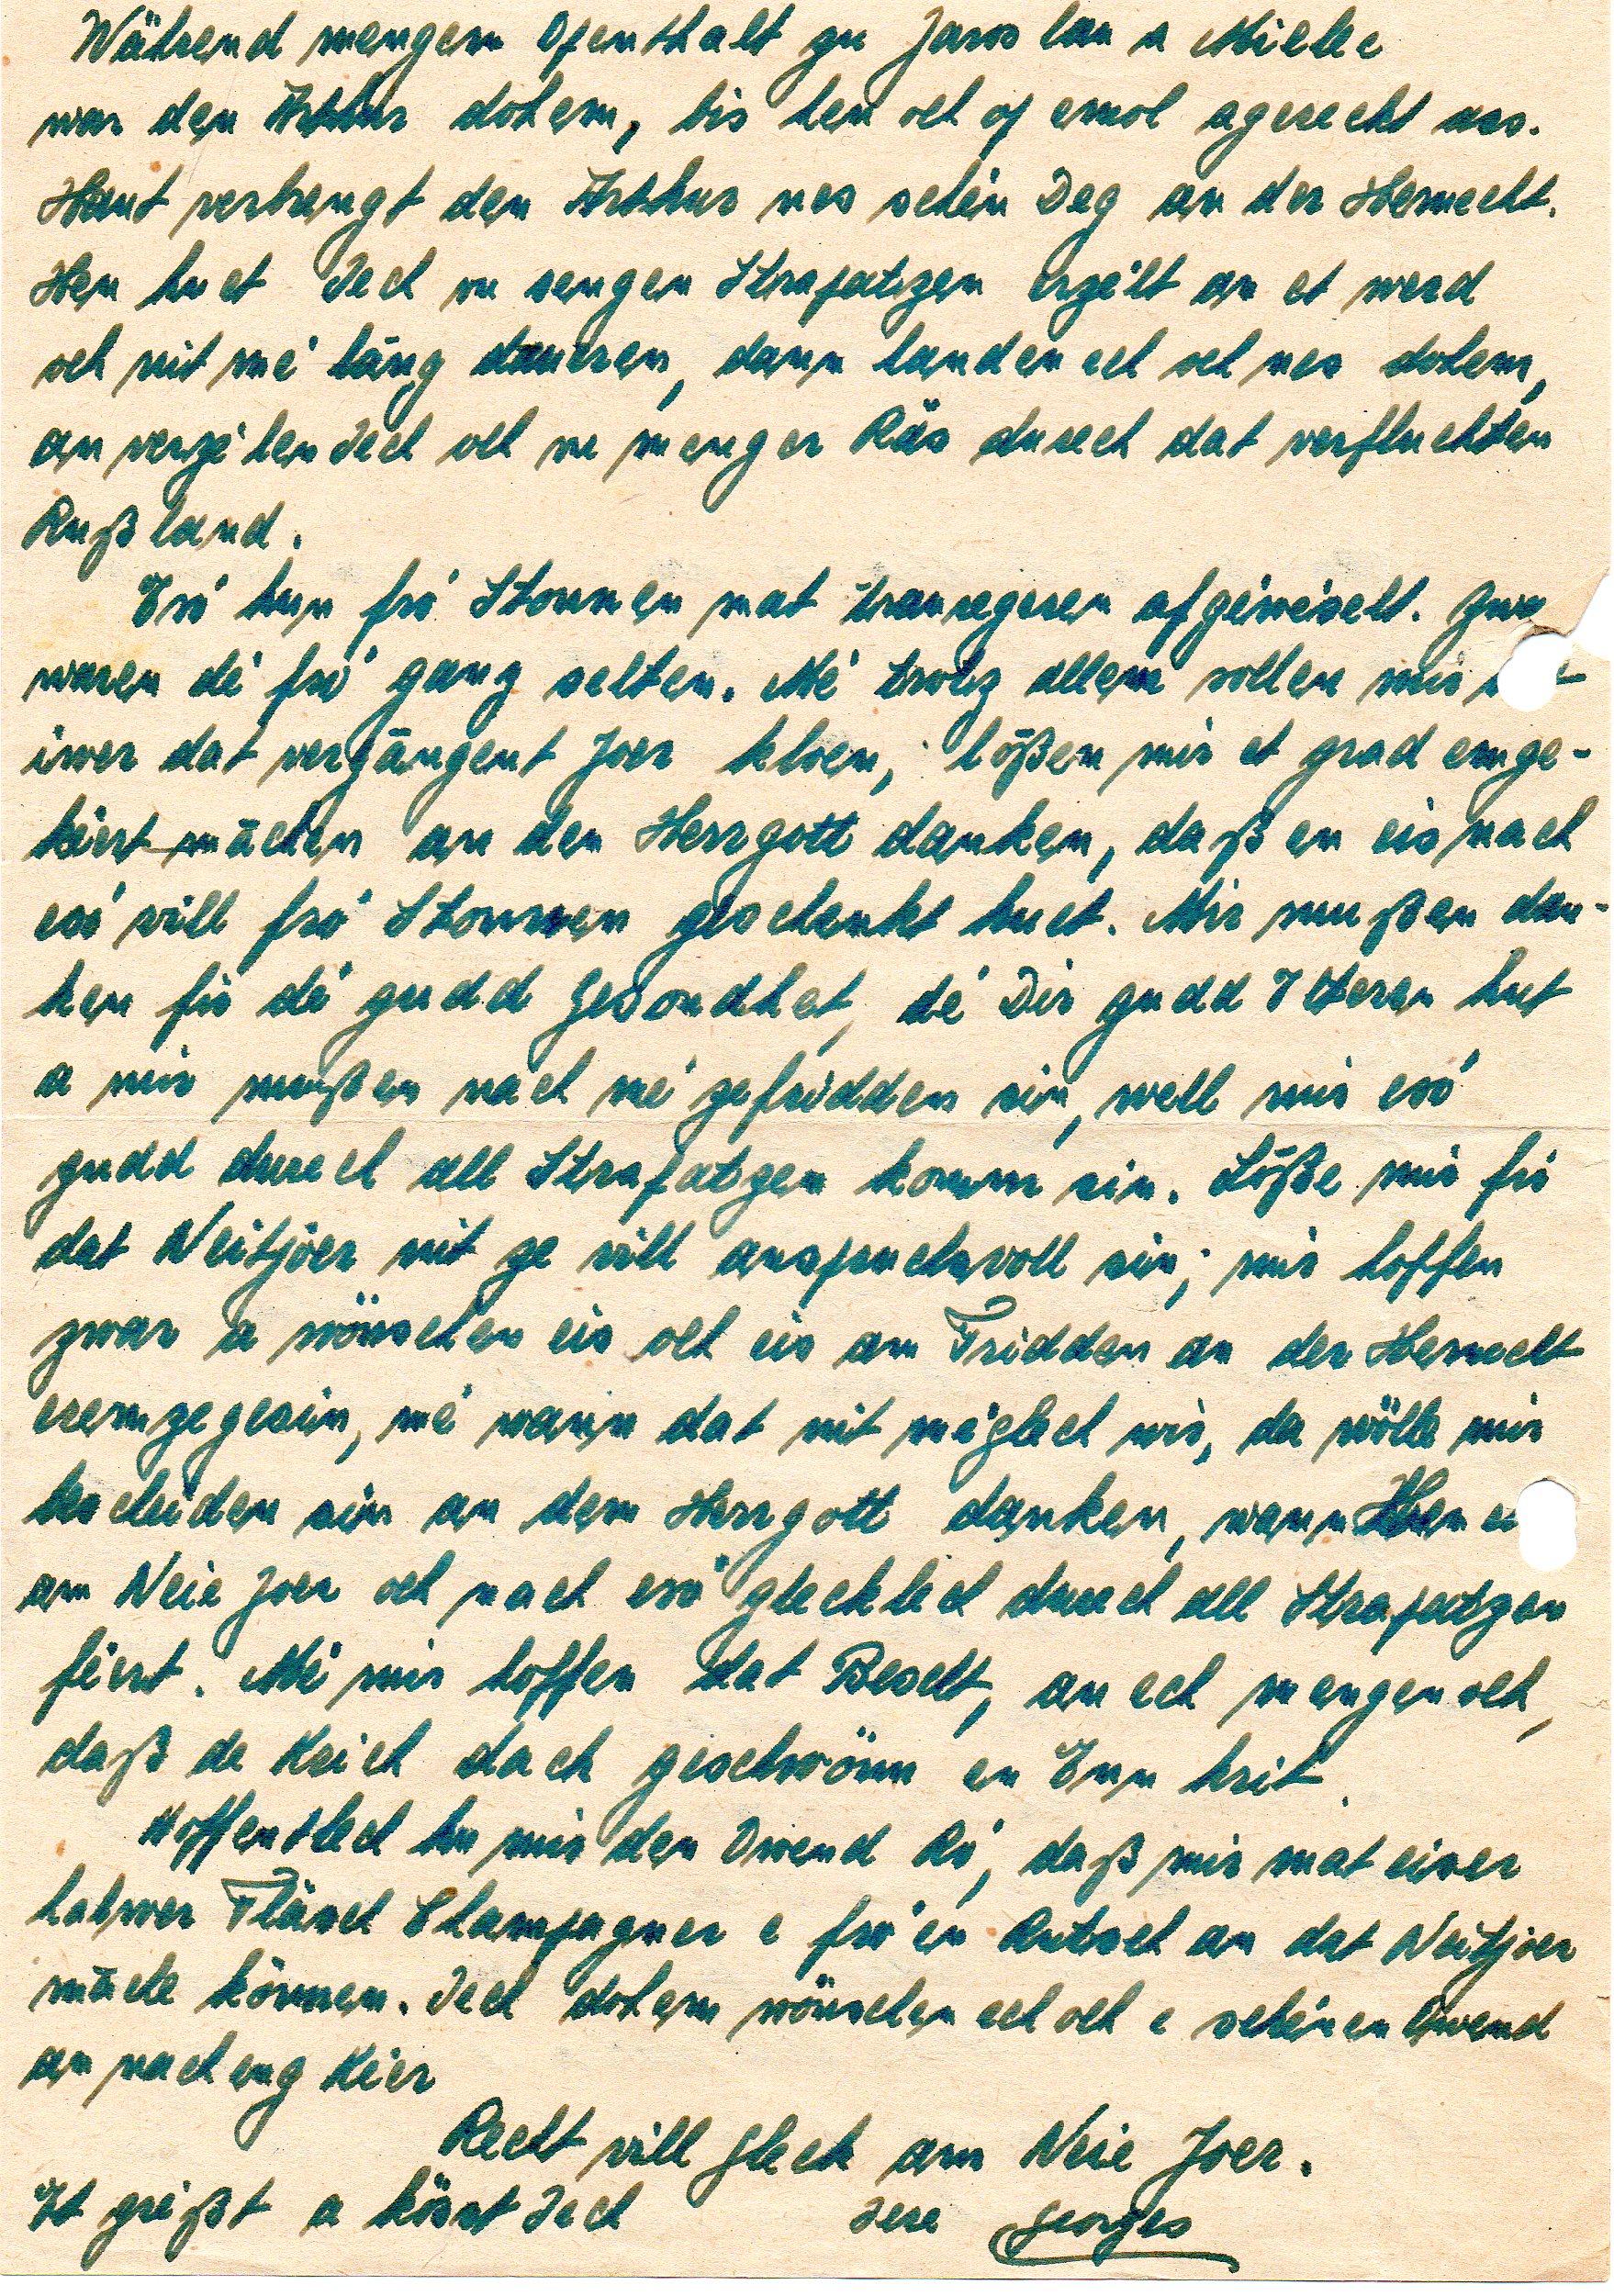 Während mengem Ofenthalt zu Jaroslau a Mielec
war den Arthur dohem, bis hen och op emol ageréckt ass.
Haut verbrengt den Arthur nes schéin Deg an der Hemecht.
Hen huet Iech vu sengen Strapatzen erzélt an et werd
och nit mé läng daueren, dann landen ech och nes dohem,
an verzélen Iech och vu menger Räs durech dat verfluchten
Rußland.
Esó hun fró Stonnen mat trauregeren ofgewéselt. Zwa
waren dé fró ganz selten. Mé trotz allem sollen mir
iwer dat vergängent Joer kloen, lößen mir et grad emge-
kéiert mächen an den Herrgott danken, daß en eis nach
esó vill fró Stonnen geschenkt huet. Mir mußen dan-
ken fir dé gudd Gesondhet, dé Dir gudd Elteren hut
a mir mußen nach mé zefridden sin, well mir esó
gudd durech all Strapatzen komm sin. Löße mir fir
dat Neitjoer nit ze vill anspruchsvoll sin; mir hoffen
zwar a wönschen eis och eis am Fridden an der Hemecht
eremzegesin, mé wann dat nit méglech wir, da wölle mir
bescheiden sin an dem Herrgott danken, wann Hen
am Neie Joer och nach esó glecklech durech all Strapatzen
féiert. Mé mir hoffen dat Bescht, an ech mengen och,
daß de Krich dach geschwönn en Enn krit.
Hoffentlech hu mir den Owend Ró, daß mir mat enner
halwer Fläsch Champagner e fró'en Rutsch an dat Neitjoer
mäche können. Iech dohem wönschen ech och e schéinen Owend
an nach eng Kéier
Recht vill Gleck am Neie Joer.
Et gréißt a kösst Iech Iere Georges